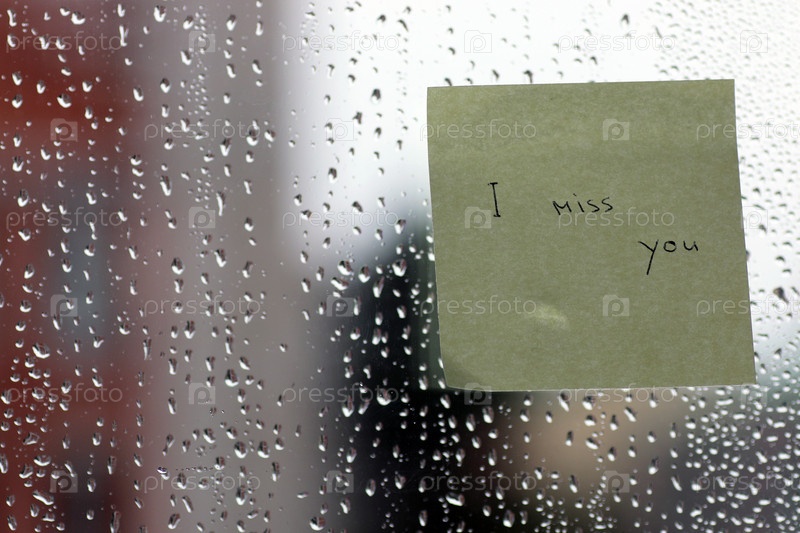 I miss
you
pressfoto